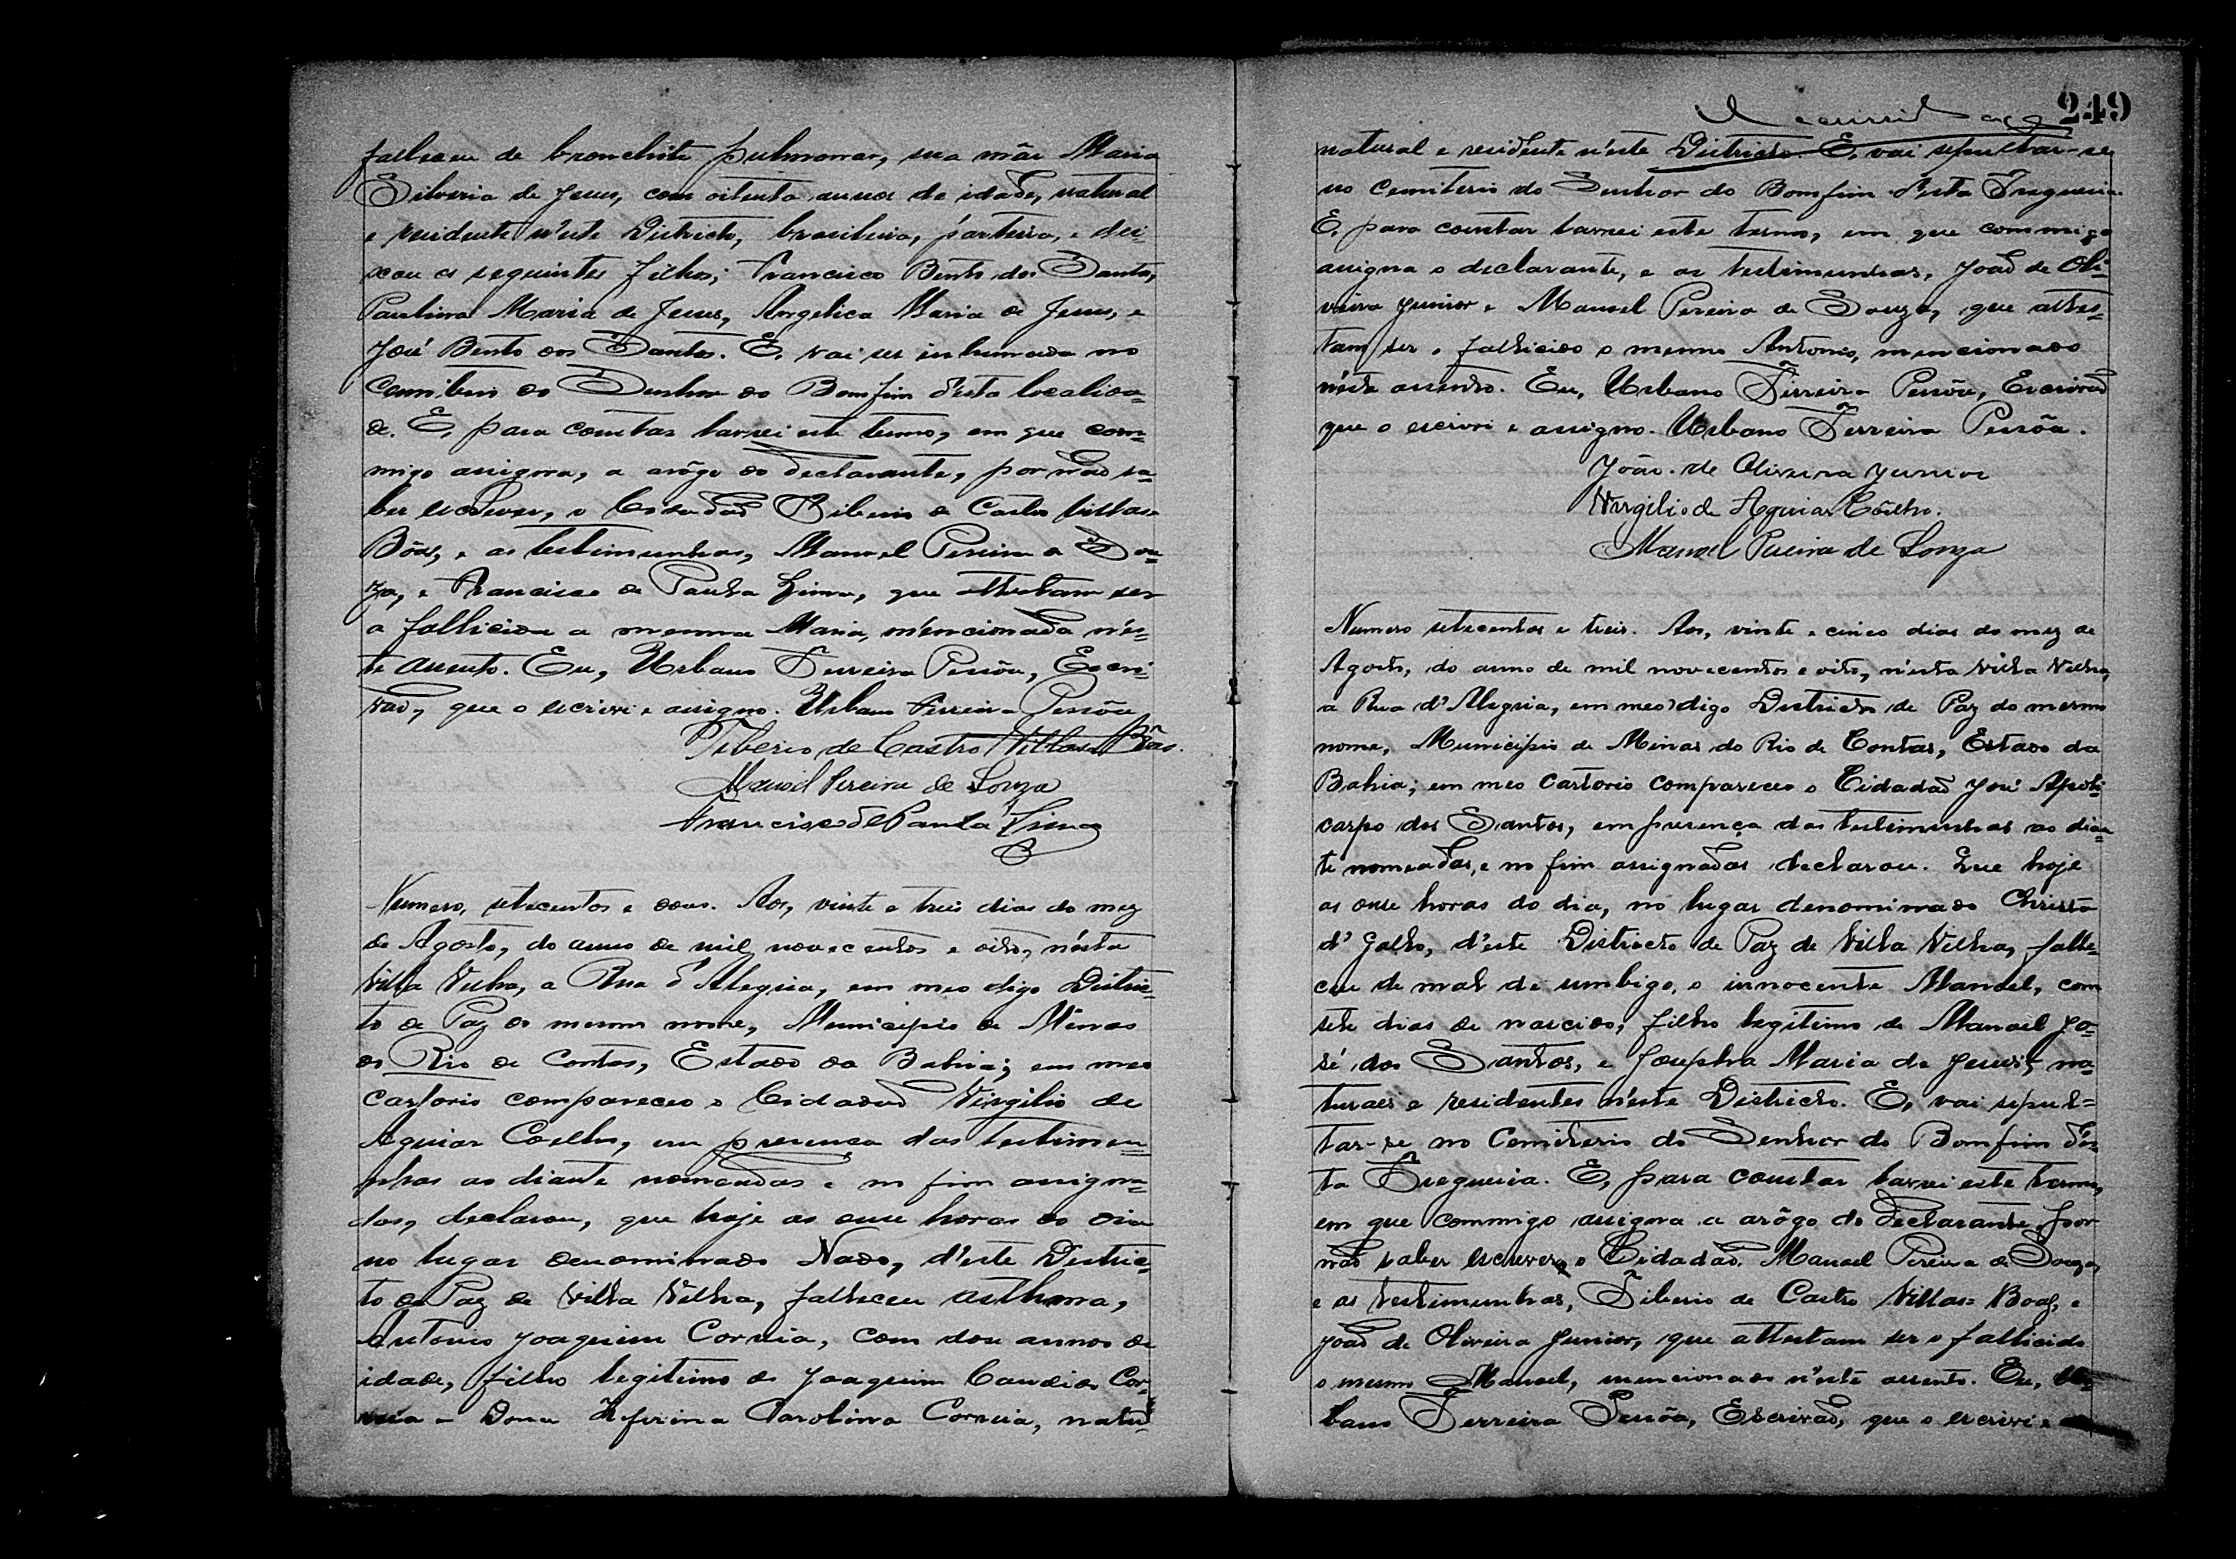 falleceu de bronchite pulmonar, sua mãe Maria
Silveria de Jesus, com oitenta annos de idade, natural
e residente n'este Districto, brasileira, parteira, e dei-
xou os seguintes filhos; Francisco Bento dos Santos,
Paulina Maria de Jesus, Angelica Maria de Jesus, e
José Bento dos Santos. E, vai ser inhumada no
Cemiterio do Senhor do Bomfim d'esta localida=
de. E, para constar lavrei este termo, em que com=
migo assigna, a arôgo do declarante, por não sa=
ber escrever, o Cidadão Tiberio de Castro Villas=
Bôas, e as testimunhas, Manoel Pereira de Sou=
za, e Francisco de Paula Lima, que attestam ser
a fallicida a mesma Maria, mencionada n'es=
te assento. Eu, Urbano Ferreira Pessôa, Escri=
vão, que o escrivi e assigno. Urbano Ferreira Pessôa
Tiberio de Castro Villas Bôas.
Manoel Pereira de Souza
Francisco de Paula Lima
Numero, setecentos e dous. Aos, vinte e treis dias do mez
de Agosto, do anno de mil novecentos e oito, n'esta
Villa Velha, a Rua d'Alegria, em meo digo Distric=
to de Paz do mesmo nome, Municipio de Minas
do Rio de Contas, Estado da Bahia; em meo
Cartorio compareceo o Cidadão Virgilio de
Aguiar Coelho, em presença das testimu=
nhas ao diante nomeadas e no fim assigna=
das, declarou, que hoje as onse horas do dia
no lugar denominado Nado, d'este Distric=
to de Paz de Villa Velha, falleceu asthma,
Antonio Joaquim Correia, com dous annos de
idade, filho legitimo de Joaquim Candido Cor=
reia e Dona Zeferina Carolina Correia, natu=
249
natural e residente n'este Districto. E, vai sepultar-se
no Cemiterio do Senhor do Bomfim d'esta Freguesia.
E, para constar lavrei este termo, em que commigo
assigna o declarante, e as testimunhas, João de Oli=
veira Junior e Manoel Pereira de Souza, que attes=
tam ser o fallicido o mesmo Antonio, mencionado
n'este assento. Eu, Urbano Ferreira Pessôa, Escrivão
que o escrivi e assigno. Urbano Ferreira Pessôa.
João de Oliveira Junior
Virgilio de Aguiar Coêlho.
Manoel Pereira de Souza
Numero setecentos e treis. Aos, vinte e cinco dias do mez de
Agosto, do anno de mil novecentos e oito, n'esta Villa Velha,
a Rua d'Alegria, em meo digo Districto de Paz do mesmo
nome, Municipio de Minas do Rio de Contas, Estado da
Bahia; em meo Cartorio compareceo o Cidadão José Apoli=
carpo dos Santos, em presença das testimunhas ao dian=
te nomeadas, e no fim assignadas declarou. Que hoje
as onse horas do dia, no lugar denominado Christa
d'Gallo, d'este Districto de Paz de Villa Velha, falle=
ceu de mal de umbigo, o innocente Manoel, com
sete dias de nascido, filho legitimo de Manoel Jo=
sé dos Santos, e Josepha Maria de Jesus, na=
turaes e residentes n'este Districto. E, vai sepul=
tar-se no Cemiterio do Senhor do Bomfim d'es=
ta Freguesia. E, para constar lavrei este termo,
em que commigo assigna a arôgo do declarante, por
não saber escrever, o Cidadão Manoel Pereira de Souza,
e as testimunhas, Tiberio de Castro Villas=Boas, e
João de Oliveira Junior, que attestam ser o fallicido
o mesmo Manoel, mencionado n'este assento. Eu, Ur=
bano Ferreira Pessôa, Escrivão, que o escrivi e